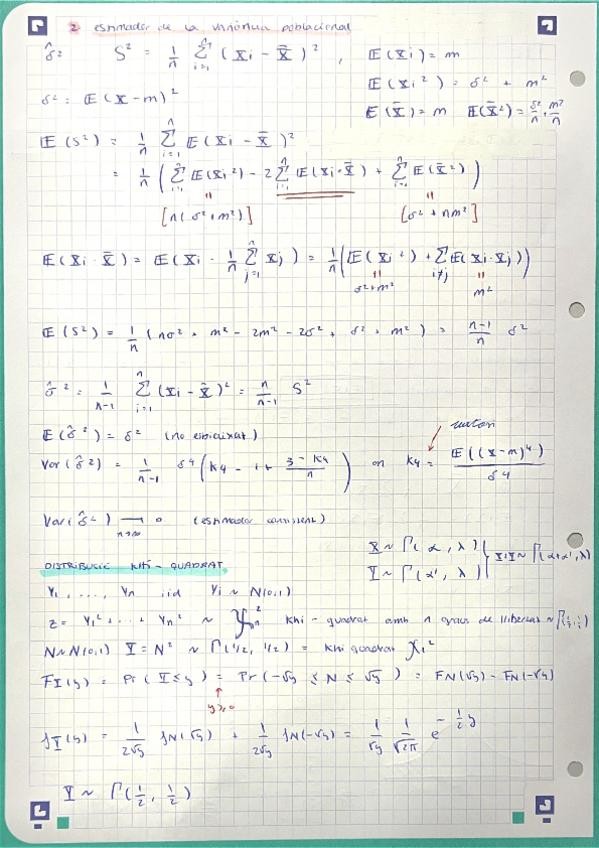 2 estimador de la variància poblacional
σ̂² S² = 1/n Σ_{i=1}^n (Xi - X̄)² , E(Xi) = m
E(Xi²) = σ² + m²
σ² = E(X-m)² E(X̄) = m E(X̄²) = σ²/n + m²/n
E(S²) = 1/n Σ_{i=1}^n E(Xi - X̄)²
= 1/n ( Σ_{i=1}^n E(Xi²) - 2 Σ_{i=1}^n E(Xi·X̄) + Σ_{i=1}^n E(X̄²) )
[n(σ²+m²)] [σ² + nm²]
E(Xi·X̄) = E(Xi · 1/n Σ_{j=1}^n Xj) = 1/n ( E(Xi²) + Σ_{i≠j} E(Xi·Xj) )
σ²+m² m²
E(S²) = 1/n (nσ² + m² - 2m² - 2σ² + σ² + m²) = n-1/n σ²
σ̂² = 1/n-1 Σ_{i=1}^n (Xi - X̄)² = n/n-1 S²
E(σ̂²) = σ² (no esbiaixat)
Var(σ̂²) = 1/n-1 σ⁴ ( K4 - 1 + 3-K4/n ) on K4 = E((X-m)⁴)/σ⁴
Var(σ̂²) → 0 n→∞ (estimador consistent)
X ~ Γ(α, λ)
Y ~ Γ(α', λ) } X+Y ~ Γ(α+α', λ)
DISTRIBUCIÓ KHI-QUADRAT
Y1, ..., Yn iid Yi ~ N(0,1)
Z = Y1² + ... + Yn² ~ χn² khi-quadrat amb n graus de llibertat ~ Γ(n/2, 1/2)
N ~ N(0,1) Y = N² ~ Γ(1/2, 1/2) = khi quadrat χ1²
FY(y) = Pr(Y ≤ y) = Pr(-√y ≤ N ≤ √y) = FN(√y) - FN(-√y)
y≥0
fY(y) = 1/2√y fN(√y) + 1/2√y fN(-√y) = 1/√y 1/√2π e^{-1/2 y}
Y ~ Γ(1/2, 1/2)